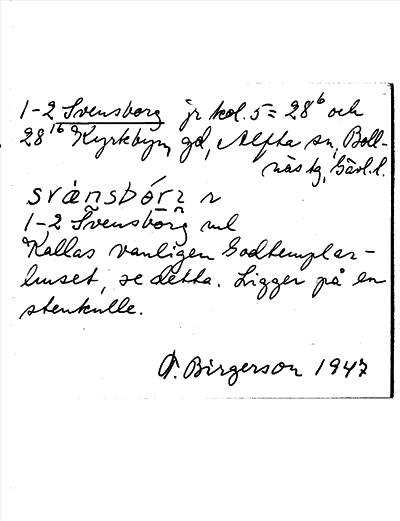 1-2 Svensborg jr kol. 5 = 28⁶ och
28¹⁶ Kyrkbyn, gd, Alfta sn, Boll-
näs tg, Gävl. l.
1-2 Svensborg ml
Kallas vanligen Godtemplar-
huset, se detta. Ligger på en
stenkulle.
Birgerson 1947